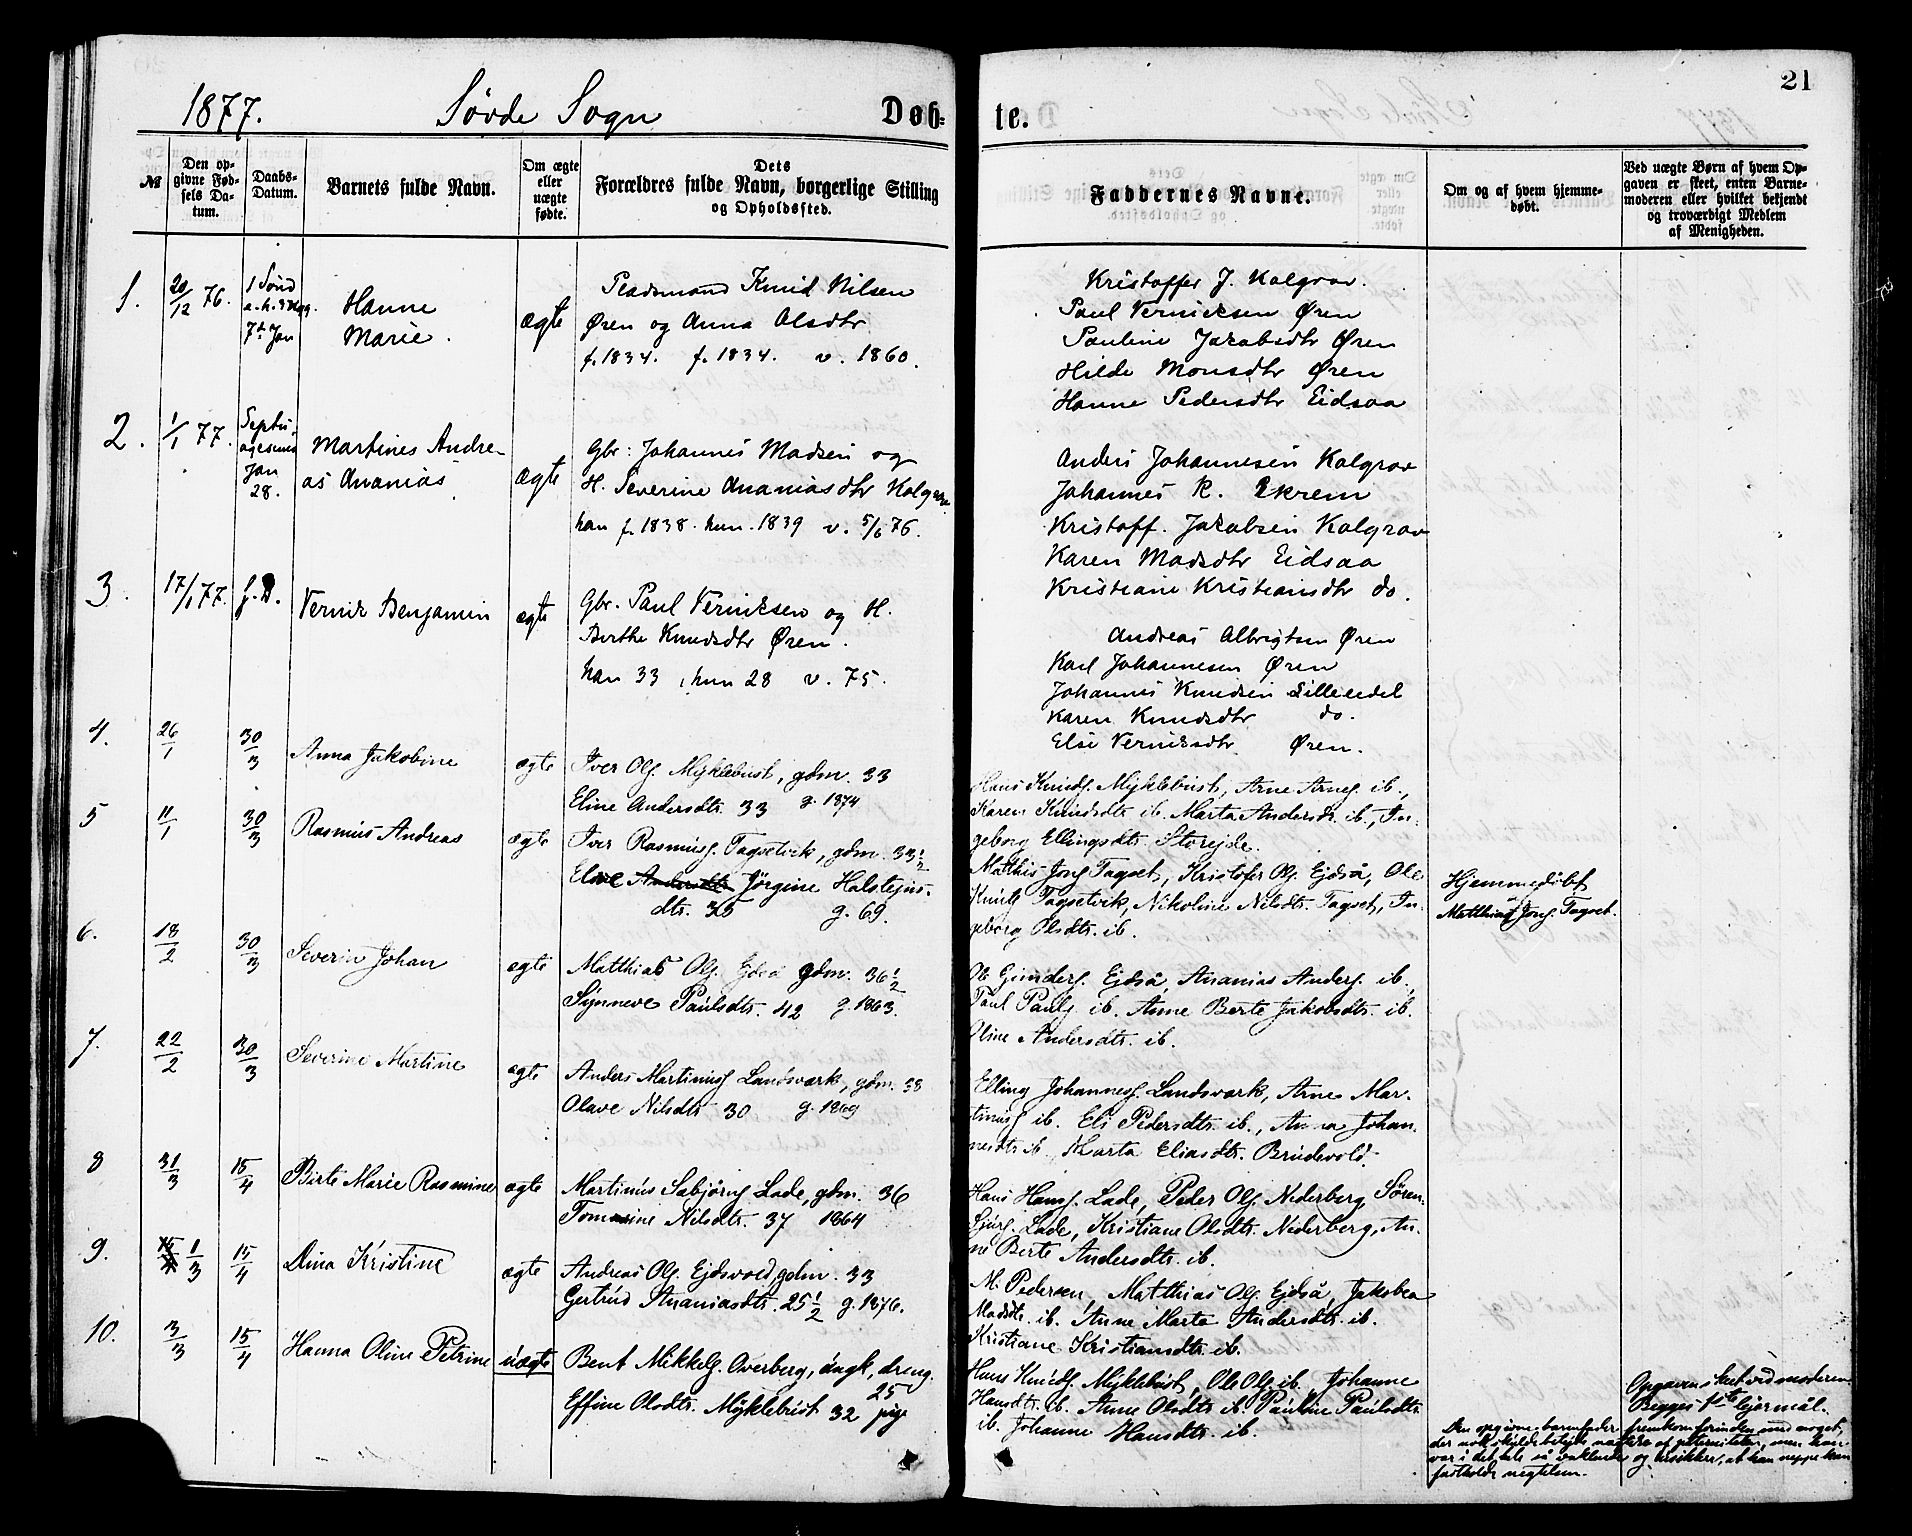 21
1877. Sövde Sogn Døb-te.
№
Den opgivne Fødsels Datum.
Daabs-Datum.
Barnets fulde Navn.
Om ægte eller uægte fødte.
Dets Forældres fulde Navn, borgerlige Stilling og Opholdssted.
Faddernes Navne.
Om og af hvem hjemmedøbt.
Ved uægte Børn af hvem Opgaven er skeet, enten Barnemoderen eller hvilket bekjendt og troværdigt Medlem af Menigheden.
1. 20/12 76.
1 Sönd
7de Jan
Hanne
Marie.
ægte
Pladsmand Knud Nilsen
Øren og Anna Olsdtr
f. 1834. f. 1834. v. 1860.
Kristoffer J. Kalgrav.
Paul Verniksen Øren
Pauline Jakobsdtr Øren
Hilde Monsdtr Øren
Hanne Pedersdtr Eidsaa
2. 1/1 77.
Septu-
agesima
Jan
28.
Martines Andre-
as Ananias
ægte
Gbr: Johannes Madsen og
H. Severine Ananiasdtr Kalgrav
han f. 1838. hun. 1839 v. 5/6 76.
Anders Johannesen Kalgrav
Johannes K. Ekrem
Kristoff. Jakobsen Kalgrav
Karen Madsdtr Eidsaa
Kristiane Kristiansdtr do.
3. 17/1 77. f. D.
Vernik Benjamin
ægte
Gbr. Paul Verniksen og H.
Berthe Knudsdtr Øren.
han 33, hun 28 v. 75.
Andreas Albrigtsen Øren
Karl Johannesen Øren
Johannes Knudsen Lilleeidet
Karen Knudsdtr do.
Else Verniksdtr Øren.
4. 26/1 30/3 Anna Jakobine
ægte
Iver Ols. Myklebust, gdm. 33
Eline Andersdtr. 33 g. 1874
Hans Knuds. Myklebust, Arne Arnes. ib.,
Karen Knudsdtr ib. Marta Andersdtr. ib., In-
geborg Ellingsdtr. Storeide.
5 11/1 30/3 Rasmus Andreas
ægte
Iver Rasmuss. Tagsetvik, gdm. 33½
Eline Andersdtr Jørgine Halstejns-
dtr. 35 g. 69.
Matthis Jons Tagset, Kristofer Ols. Ejdså, Ole
Knuts Tagsetvik, Nikoline Nilsdtr. Tagset, In-
geborg Olsdtr. ib.
Hjemmedöbt
Matthias Jons. Tagset.
6. 18/2 30/3 Severin Johan
ægte
Matthias Ols. Ejdså gdm. 36½
Synneve Paulsdtr. 42 g. 1863.
Ole Gunders. Ejdså, Ananias Anders. ib.,
Paul Pauls. ib. Anne Berte Jakobsdtr. ib.
Oline Andersdtr. ib.
7. 22/2 30/3 Severine Martine
ægte
Anders Martinuss Landsværk, gdm. 38
Olave Nilsdtr 30 g. 1869
Elling Johanness. Landsvark, Arnes Mar-
tinuss ib. Eli Pedersdtr. ib., Anna Johan-
nesdtr ib, Marta Eliasdtr. Brudevold.
8 31/3 15/4 Birte Marie Rasmine
ægte
Martinus Sabjörns Lade, gdm. 36
Tomasine Nilsdtr. 37 1864
Hans Hanss. Lade, Peder Ols. Nederberg, Sören
Sjurs. Lade, Kristiane Olsdtr. Nederberg, An-
ne Berte Andersdtr. ib.
9. 1/3 15/4 Dina Kristine
ægte
Andreas Ols. Ejdsvold, gdm. 33
Gertrud Ananiasdtr. 25½ g. 1876.
M. Pedersen, Matthias Ols. Ejdså, Jakobea
Madsdtr. ib. Anne Marta Andersdtr. ib.
Kristiane Kristiansdtr. ib.
10. 3/3 15/4 Hanna Oline Petrine
uægte
Bent Mikkels. Overberg, ungk., dreng.
25
Effine Olsdtr. Myklebust 32 pige
Hans Knuds. Myklebust, Ole Ols. ib. Johanne
Hansdtr. ib. Anne Olsdtr. ib. Pauline Paulsdtr.
ib. Johanne Hansdtr. ib.
Opgaven skeet ved moderen.
Begges 1ste lejermål.
Den opgivne barnefader fremkom forinden med noget,
der nok skulde betyde nægtelse af paterniteten, men han
var i det hele så vaklende og usikker, at han neppe kan
fastholde nægtelsen.